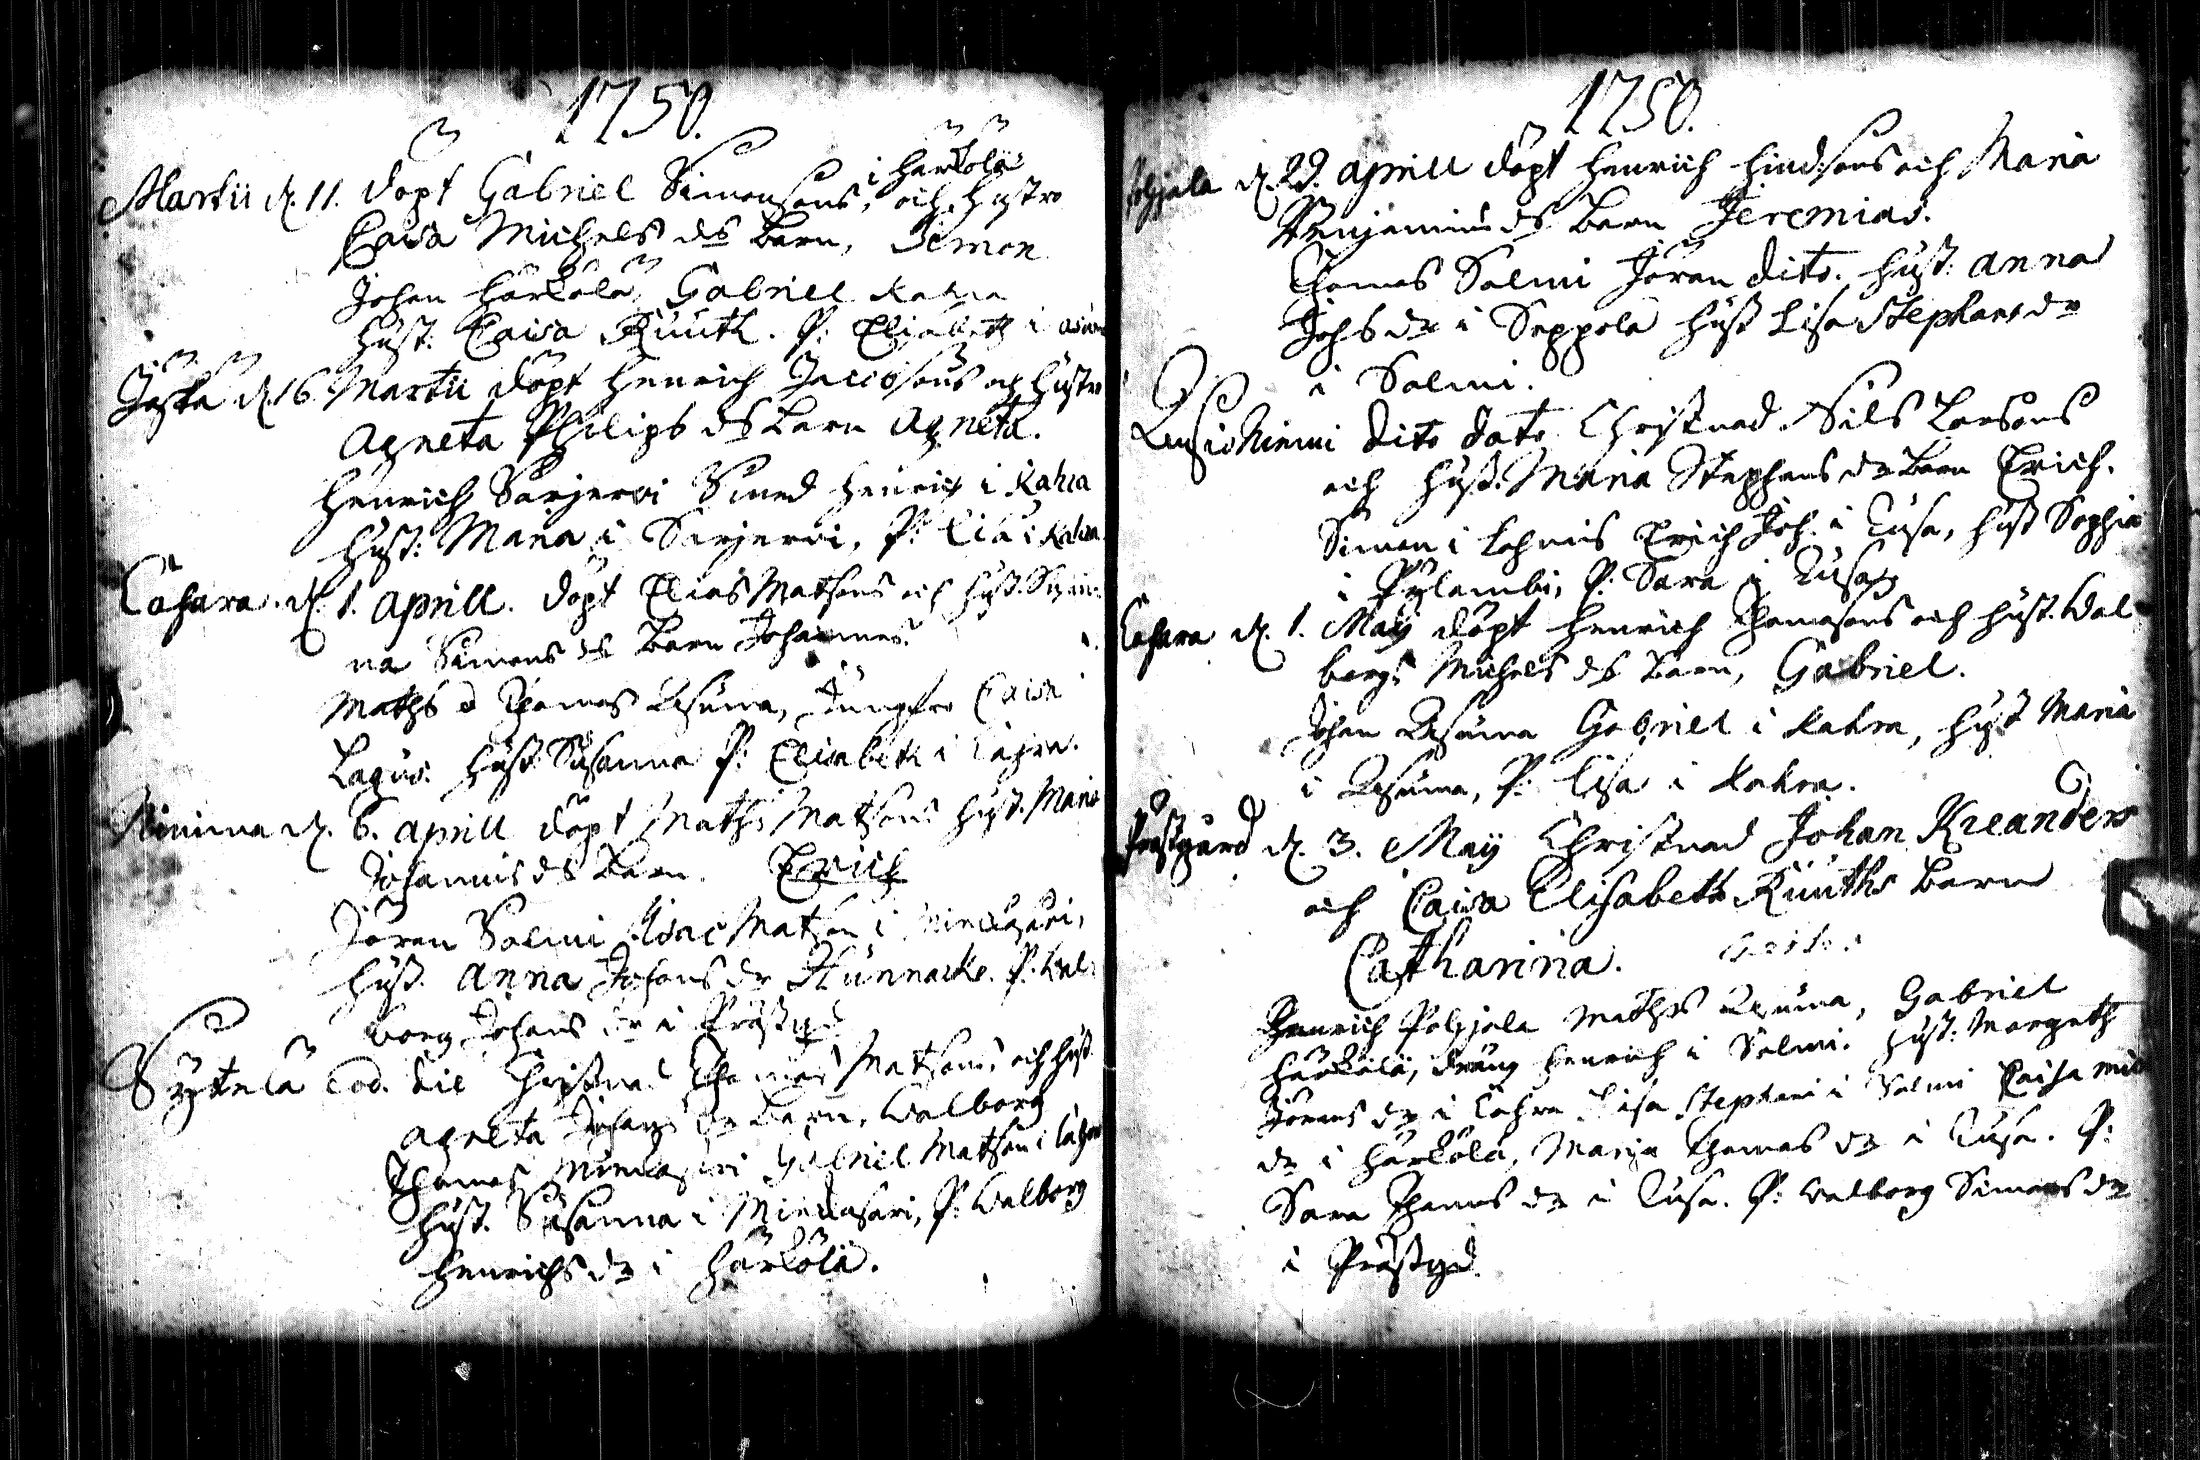 1750.
Martii d. 11. döpt Gabriel Simonsons, i Härkölä och Hustro
Caisa Michels ds barn, Simon
Johan Härkälä, Gabriel Kahra
Hust: Caisa Kiuuth. P: Elisabeth i
d. 16 Martii döpt Henrich Jacobsons och Hustro
Agneta Philips ds barn Agneta.
Henrich Sarjervi Smed Henrich i Kahra
Hust: Maria i Sarjervi, P: Lisa i Kahra
Cahara. d. 1. Aprill. döpt Elias Matsons och Hust. Susan
na Simons ds barn Johannes.
Maths o Thomas Uhuma, Jungfro Caisa
Lagus. Hust: Susanna P: Elisabeth i Cahra.
Nimina d. 6. Aprill döpt Maths Matsons Hust. Maria
Johannis ds barn. Erich
Jöran Salmi Isac Matson i
Hust. Anna Johans dr Hunnacko. P. Wal
borg Johans dr i Prästgd
Sytelä Eod. die Christnad Thomas Matsons och Hust
Agneta Johans dr barn, Walborg
Thomas Gabriel Matson i Cahra
Hust. Susanna i P: Walborg
Henrichs dr i Härkölä.
1750.
Pohjala d. 29. Aprill döpt Henrich Hindsons och Maria
Benjamins ds barn Jeremias.
Thomas Salmi Jöran dito. Hust: Anna
Johs dr i Seppola Hust Lisa Stephans dr
i Salmi.
dito dato Christnad Nils Larsons
och Hust. Maria Stephans dr barn Erich.
Simon i Lohmis Erich Joh. i Tusa, Hust Sophia
i Pylambi, P: Sara i Tusa
Cahara d. 1. Maÿ döpt Henrich Thomasons och Hust. Wal
borgs Michels ds barn, Gabriel.
Johan Uhuma Gabriel i Kahra, Hust Maria
i Uhuma, P: Lisa i Kahra.
Prästgård d. 3. Maÿ Christnad Johan Kreanders
och Caisa Elisabeth Kiuths barn
Catharina.
Henrich Pohjola Maths Uhuma, Gabriel
Härkälä, dräng Henrich i Salmi. Hust: Margeth
Jörans dr i Cahra Lisa Stephani i Salmi Caisa Mich
dr i Härkölä, Marja Thomas dr i Tusa. P:
Sara Thomas dr i Tusa. P: Walborg Simons dr
i Prästgd.